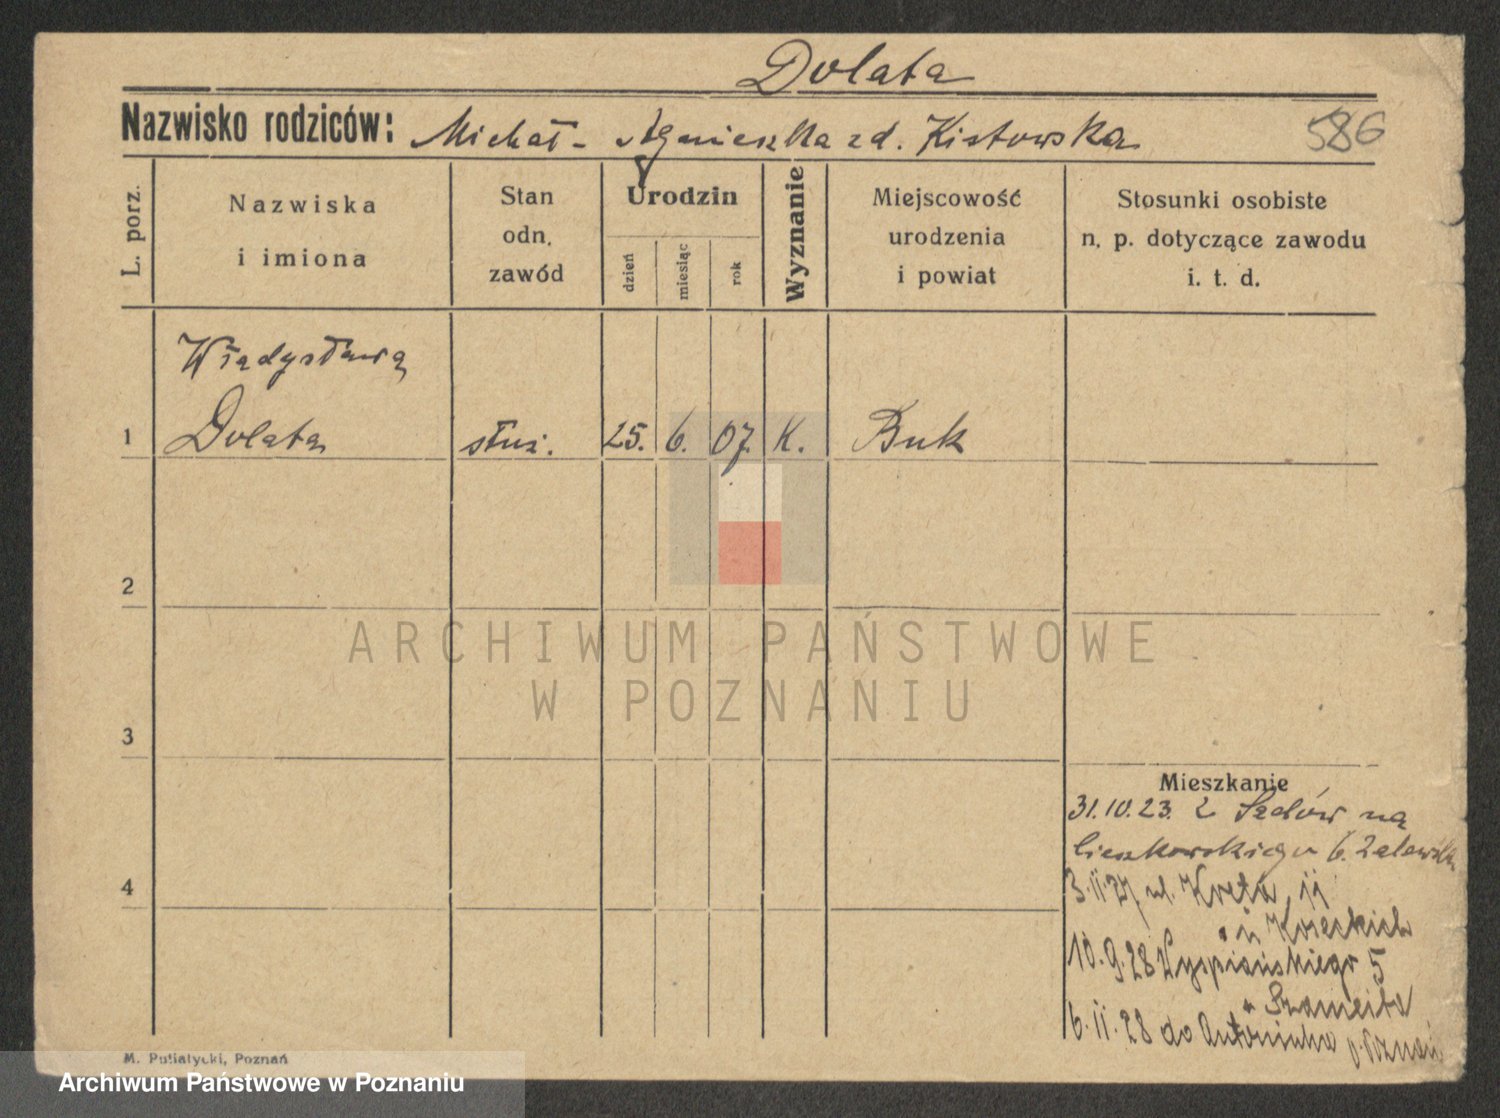 Dolata
Nazwisko rodziców: Michał - Agnieszka zd. Kistowska
586
L. porz.
Nazwiska
i imiona
Stan
odn.
zawód
Urodzin
dzień
miesiąc
rok
Wyznanie
Miejscowość
urodzenia
i powiat
Stosunki osobiste
n. p. dotyczące zawodu
i. t. d.
Władysława
1 Dolata służ. 25. 6. 07. K. Buk
2
ARCHIWUM PAŃSTWOWE
W POZNANIU
3
Mieszkanie
31.10.23. z na
Cieszkowskiego 6.
4
3.11.27 ul. Kręta 11
u Koseckich
10.9.28 Wyspiańskiego 5
6.11.28 do Antoninka p. Poznań
M. Putiatycki, Poznań
Archiwum Państwowe w Poznaniu